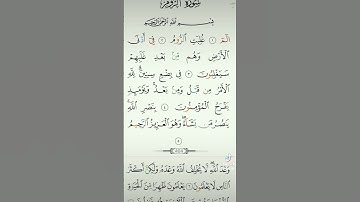 سُورَةُ الرُّومِ
بِسْمِ اللَّهِ الرَّحْمَٰنِ الرَّحِيمِ
الٓمٓ ١ غُلِبَتِ ٱلرُّومُ ٢ فِىٓ أَدْنَى
ٱلْأَرْضِ وَهُم مِّنۢ بَعْدِ غَلَبِهِمْ
سَيَغْلِبُونَ ٣ فِى بِضْعِ سِنِينَ لِلَّهِ
ٱلْأَمْرُ مِن قَبْلُ وَمِنۢ بَعْدُ وَيَوْمَئِذٍ
يَفْرَحُ ٱلْمُؤْمِنُونَ ٤ بِنَصْرِ ٱللَّهِ
يَنصُرُ مَن يَشَآءُ وَهُوَ ٱلْعَزِيزُ ٱلرَّحِيمُ
٥
وَعْدَ ٱللَّهِ لَا يُخْلِفُ ٱللَّهُ وَعْدَهُۥ وَلَٰكِنَّ أَكْثَرَ
ٱلنَّاسِ لَا يَعْلَمُونَ ٦ يَعْلَمُونَ ظَٰهِرًا مِّنَ ٱلْحَيَوٰةِ